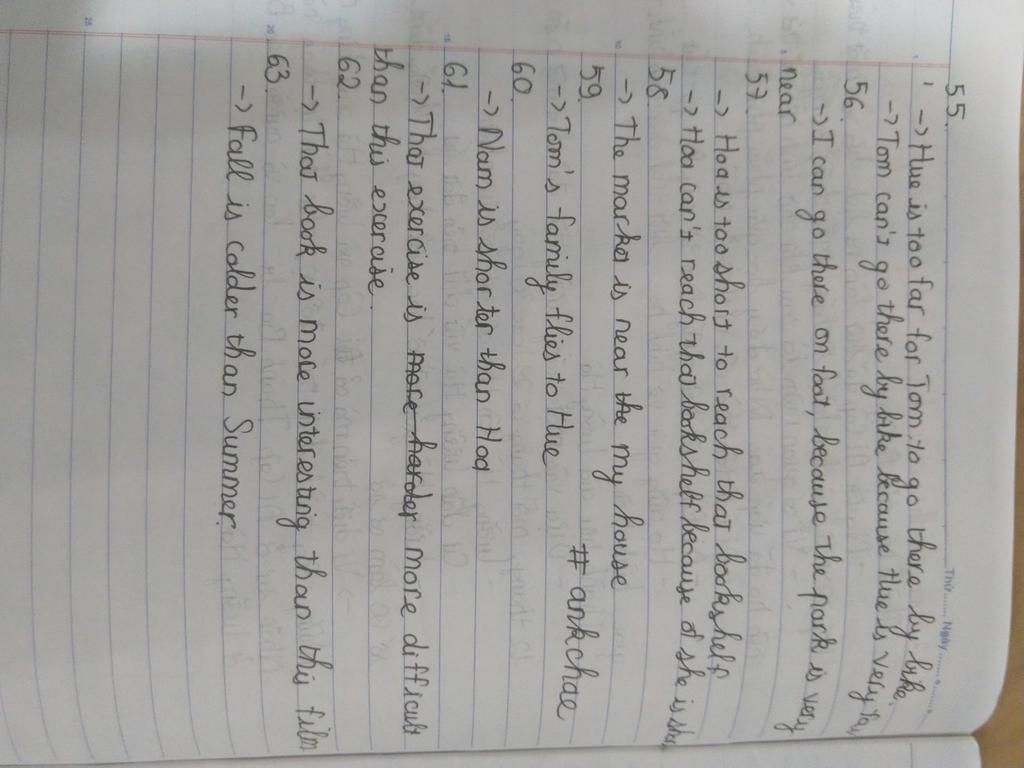 Thứ........ Ngày........
55.
-> Hue is too far for Tom to go there by bike.
-> Tom can's go there by bike because Hue is very
56.
-> I can go there on foot, because the park is very
near
57.
-> Hoa is too short to reach that bookshelf
-> Hoa can's reach that bookshelf because of she is
58.
-> The market is near the my house
59.
-> Tom's family flies to Hue
# ankchae
60.
-> Nam is shorter than Hoa
61.
-> That exercise is more harder more difficult
than this exercise.
62.
-> That book is more interesting than this film
63.
-> Fall is colder than Summer.